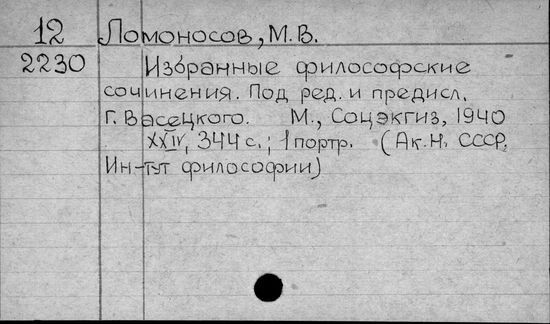 12 Ломоносов, М.В.
2230 Избранные философские
сочинения. Под ред. и предисл.
Г. Васецкого. М., Соцэкгиз, 1940
XXIV, 344 с.; 1 портр. (Ак. Н. СССР.
Ин-тут философии)